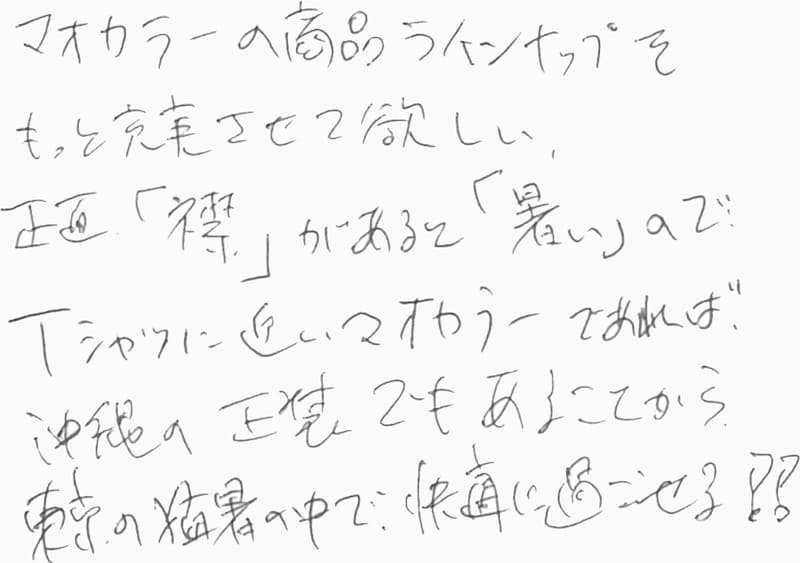 マオカラーの商品ラインナップを
もっと充実させて欲しい、
正直「襟」があると「暑い」ので
Tシャツに近いマオカラーであれば
沖縄の正装でもあることから
東京の猛暑の中で快適に過ごせる??